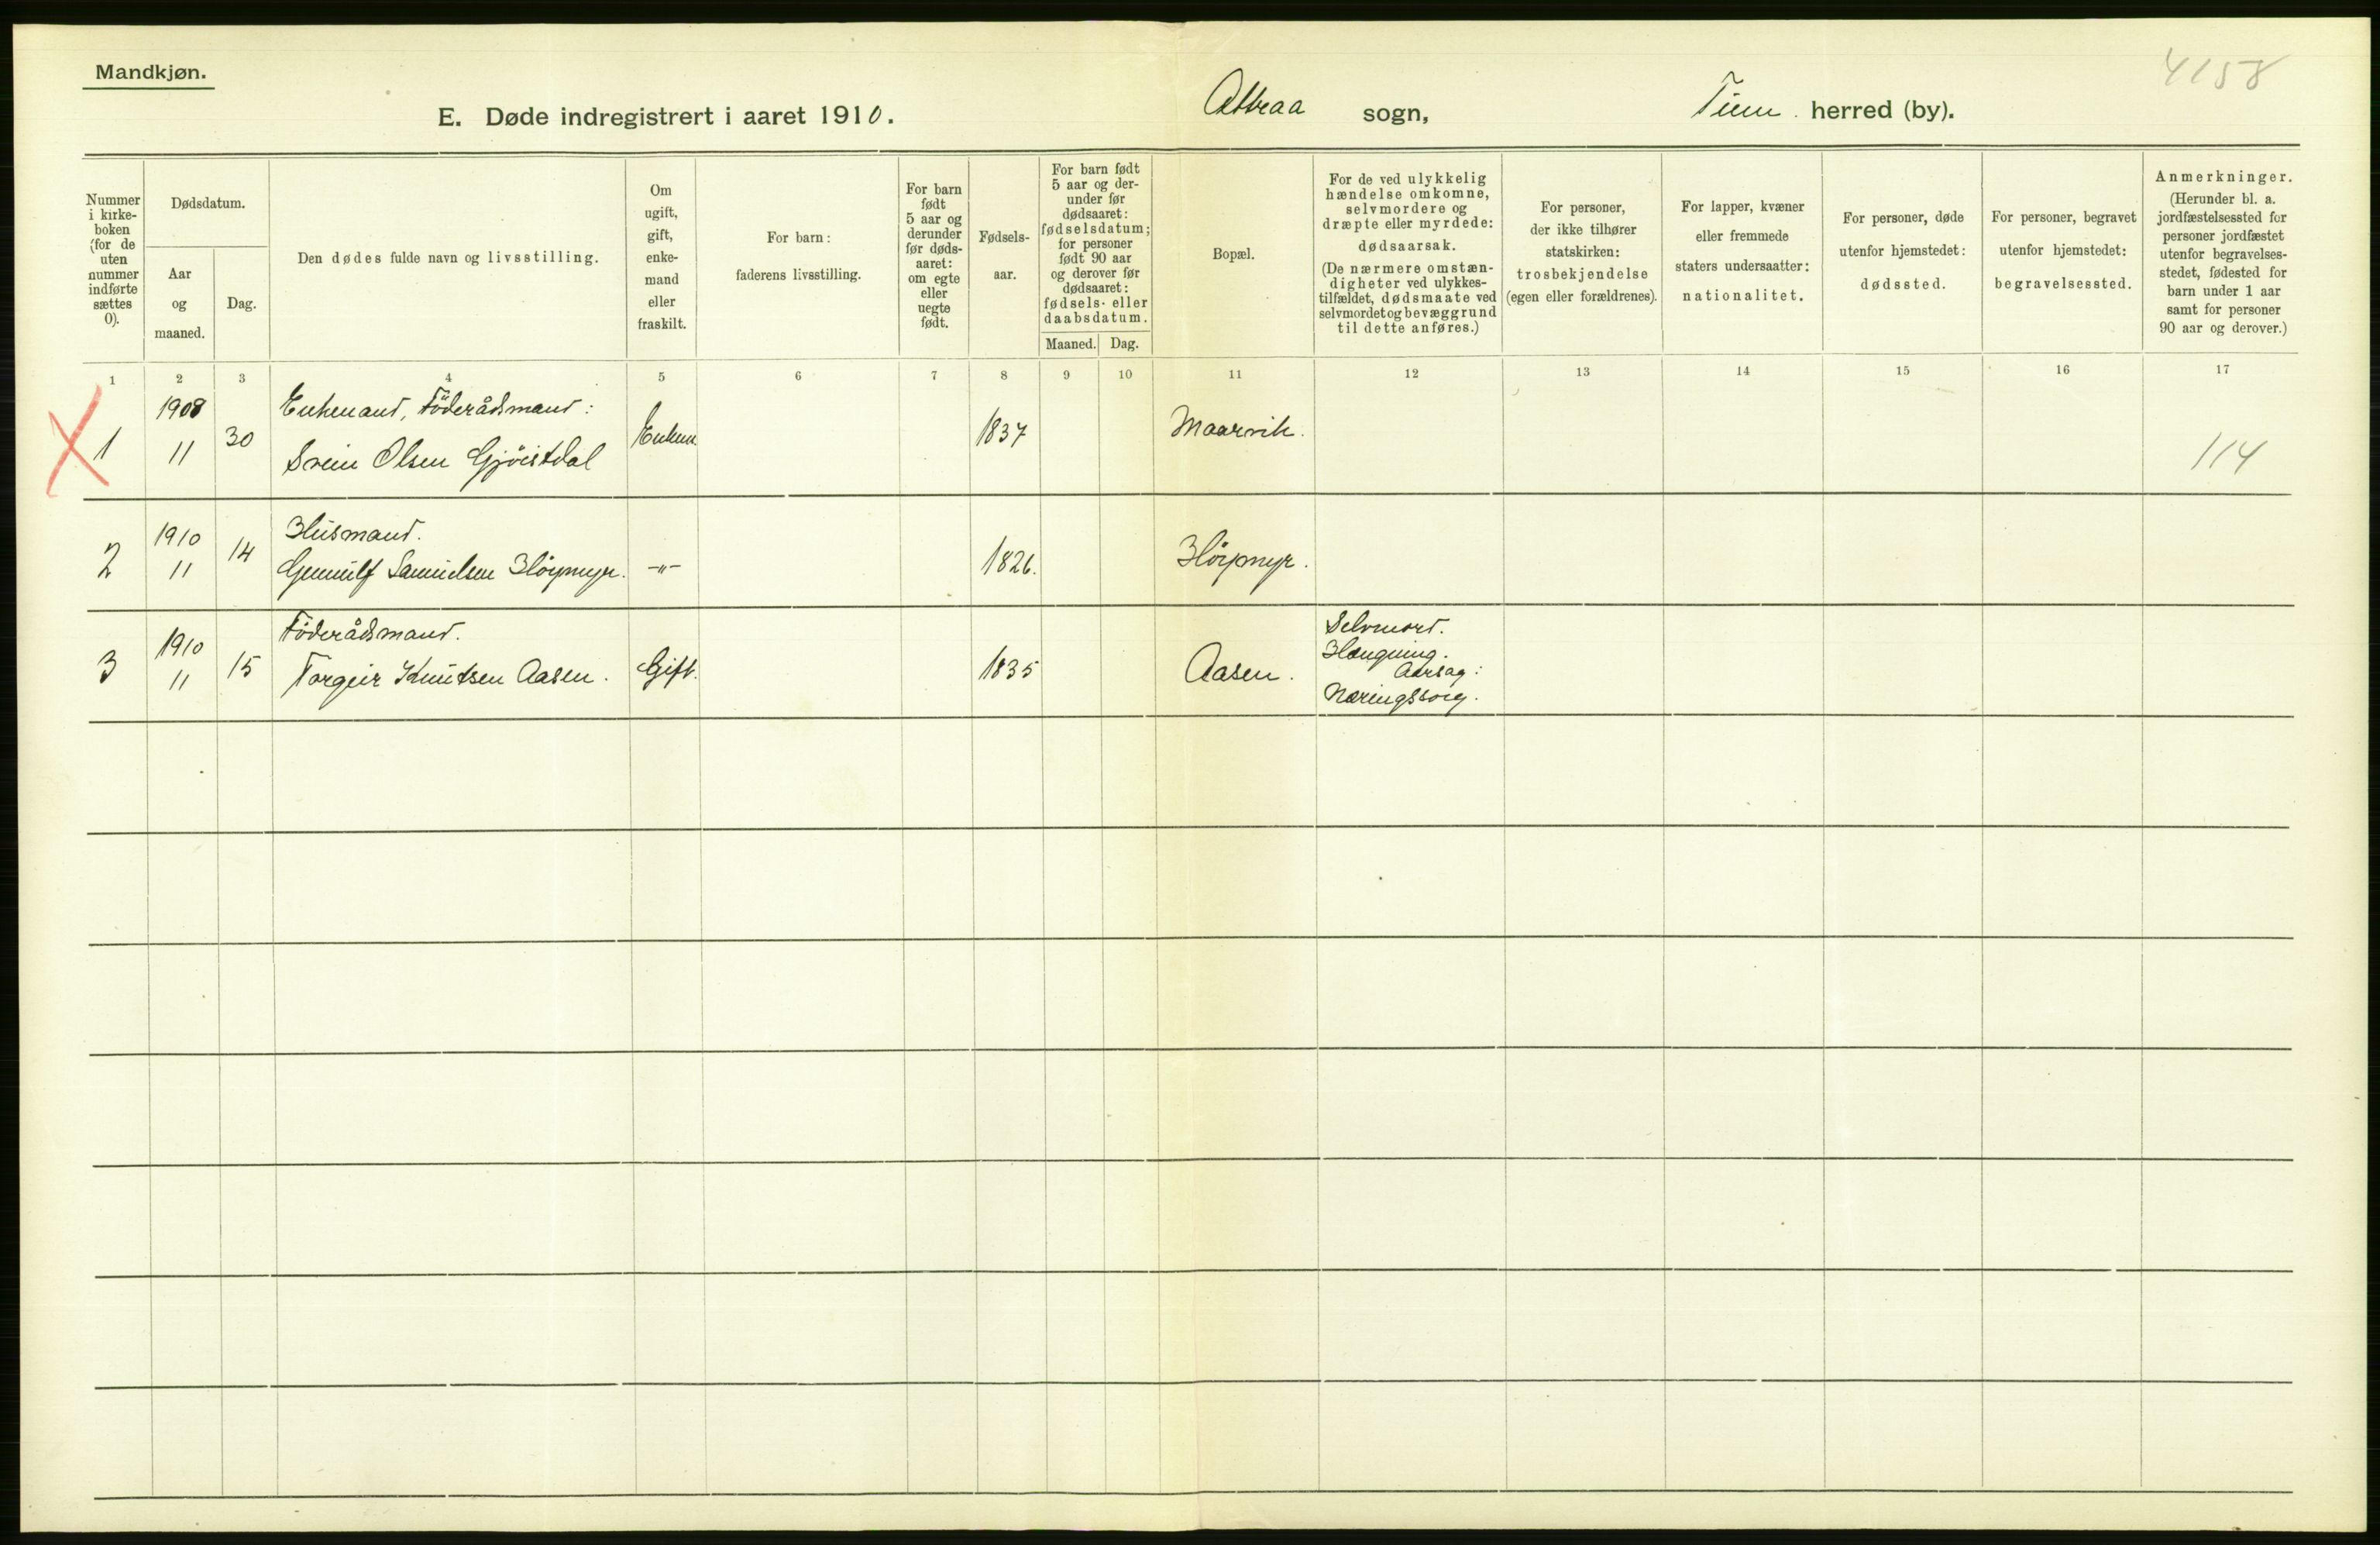 Mandkjøn.
4158
E. Døde indregistrert i aaret 1910. Attraa sogn, Tinn herred (by).
Nummer
i kirke-
boken
(for de
uten
nummer
indførte
sættes
0).
Dødsdatum.
Aar
og
maaned.
Dag.
Den dødes fulde navn og livsstilling.
Om
ugift,
gift,
enke-
mand
eller
fraskilt.
For barn:
faderens livsstilling.
For barn
født
5 aar og
derunder
før døds-
aaret:
om egte
eller
uegte
født.
Fødsels-
aar.
For barn født
5 aar og der-
under før
dødsaaret:
fødselsdatum;
for personer
født 90 aar
og derover før
dødsaaret:
fødsels- eller
daabsdatum.
Maaned. Dag.
Bopæl.
For de ved ulykkelig
hændelse omkomne,
selvmordere og
dræpte eller myrdede:
dødsaarsak.
(De nærmere omstæn-
digheter ved ulykkes-
tilfældet, dødsmaate ved
selvmordet og bevæggrund
til dette anføres.)
For personer,
der ikke tilhører
statskirken:
trosbekjendelse
(egen eller forældrenes).
For lapper, kvæner
eller fremmede
staters undersaatter:
nationalitet.
For personer, døde
utenfor hjemstedet:
dødssted.
For personer, begravet
utenfor hjemstedet:
begravelsessted.
Anmerkninger.
(Herunder bl. a.
jordfæstelsessted for
personer jordfæstet
utenfor begravelses-
stedet, fødested for
barn under 1 aar
samt for personer
90 aar og derover.)
1 2 3 4 5 6 7 8 9 10 11 12 13 14 15 16 17
1908 Enkemand, Föderådsmand:
1 11 30 Svein Olsen Gjöistdal Enkem. 1837 Maarvik. 114
1910 Husmand.
2 11 14 Gunnulf Samuelsen Höymyr. -"- 1826. Höymyr.
1910 Föderådsmand.
3 11 15 Torgeir Knutsen Aasen. Gift. 1835 Aasen.
Selvmord.
Hængning.
Aarsag:
Næringssorg.